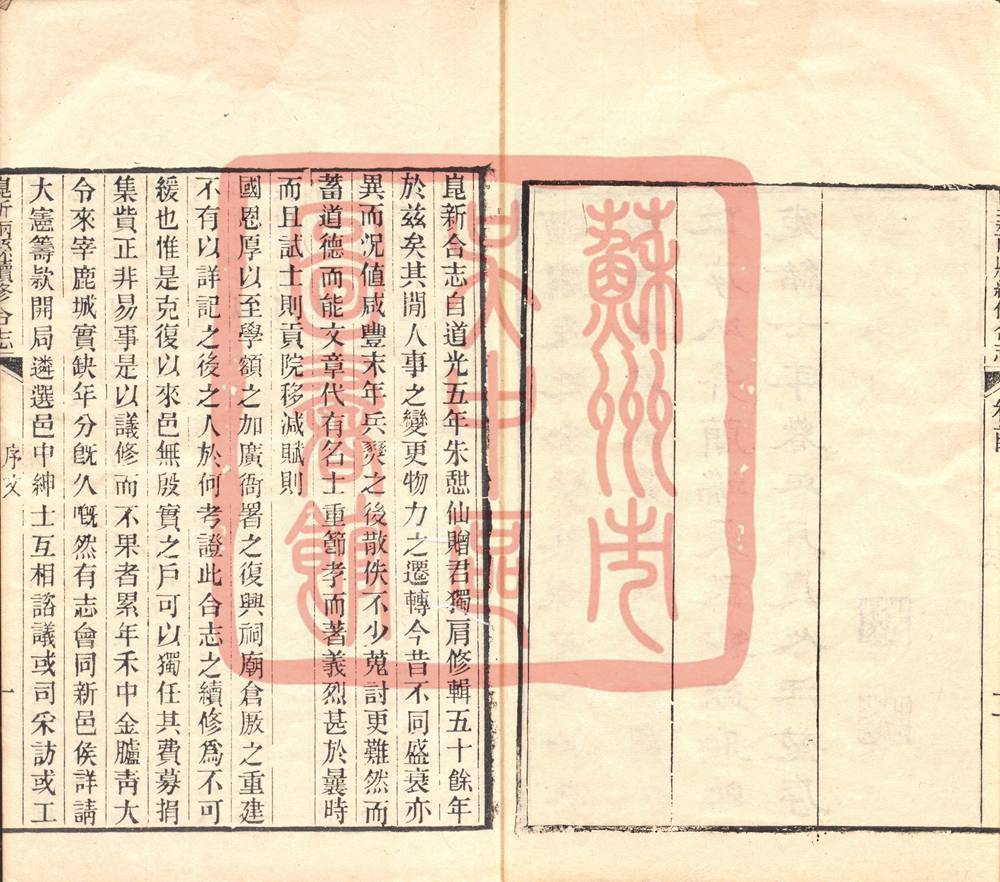 崑新合志自道光五年朱憇仙贈君獨肩修輯五十餘年
於兹矣其閒人事之變更物力之遷轉今昔不同盛衰亦
異而况值咸豐末年兵燹之後散佚不少蒐討更難然而
蓄道德而能文章代有名士重節孝而著義烈甚於曩時
而且試士則貢院移減賦則
國恩厚以至學額之加廣衙署之復興祠廟倉厫之重建
不有以詳記之後之人於何考證此合志之續修爲不可
緩也惟是克復以來邑無殷實之戶可以獨任其費募捐
集貲正非易事是以議修而不果者累年禾中金臚靑大
令來宰鹿城實缺年分旣久嘅然有志會同新邑侯詳請
大憲籌欵開局遴選邑中紳士互相諮議或司采訪或工
崑新兩縣續修合志
序文
一
蘇州市
吴中區
圖書館